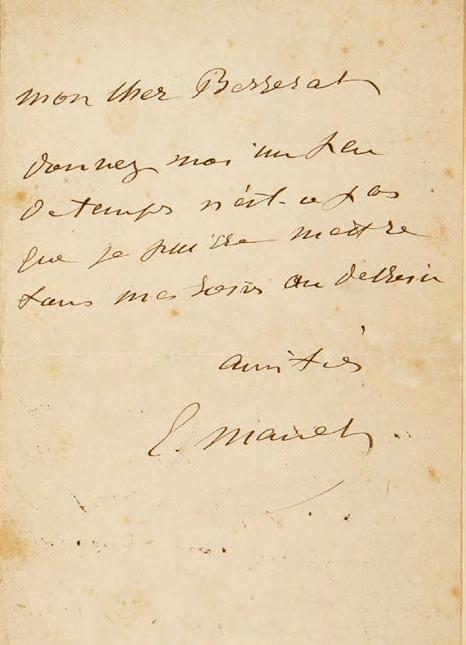 mon cher Bergerat
donnez moi un peu
de temps n'est-ce pas
que je puisse mettre
tous mes soins au dessin
amitiés
E. Manet